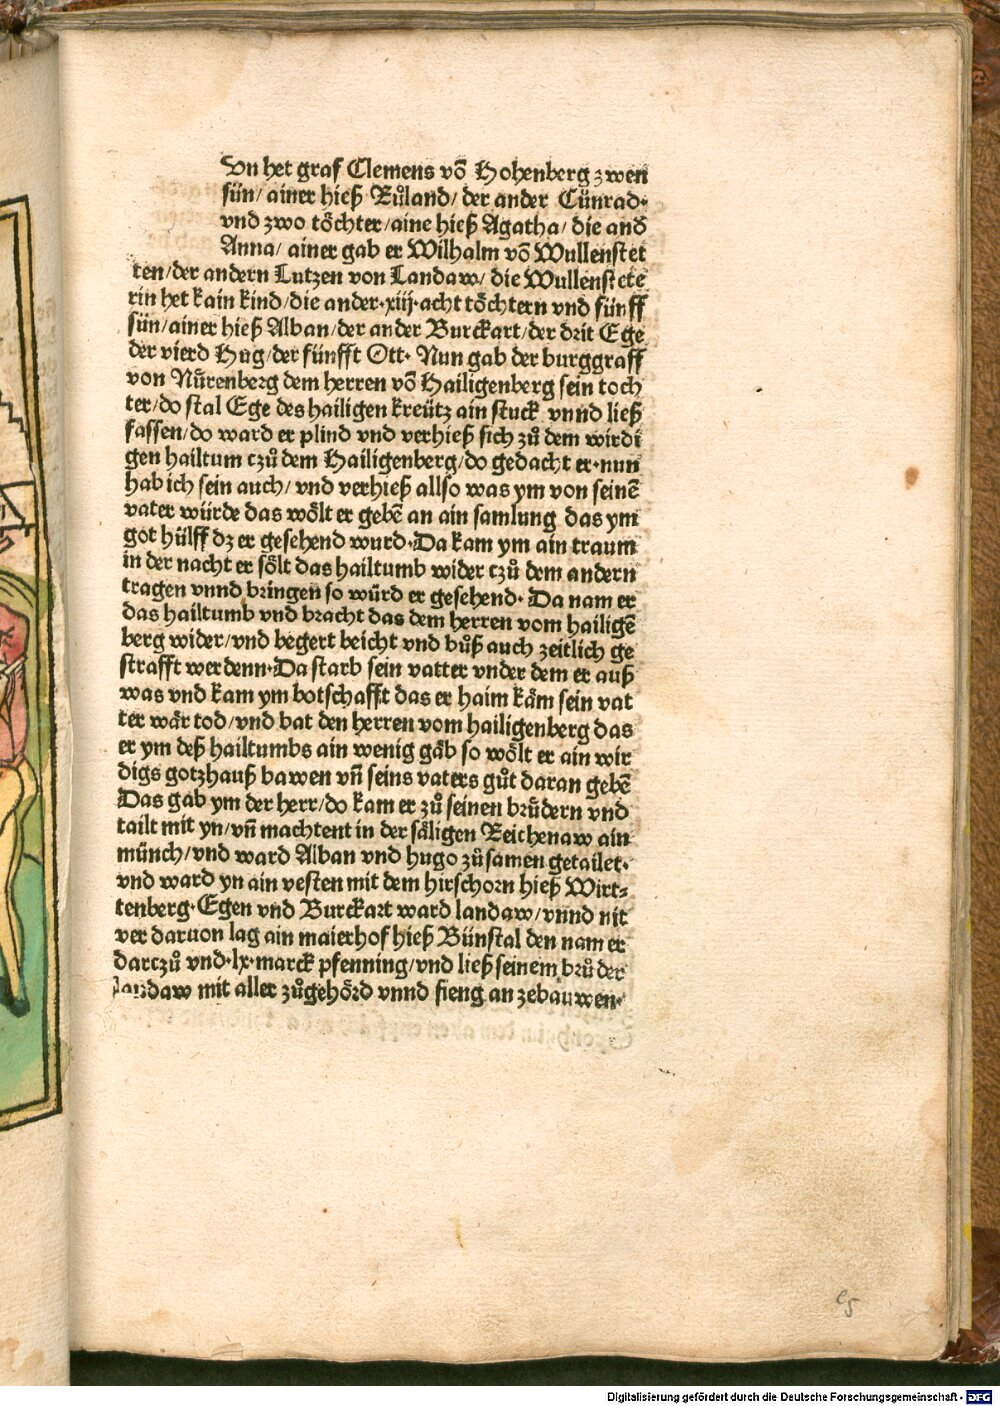 Vn het graf Clemens võ Hohenberg zwen
sün/ ainer hieß Růland/ der ander Cůnrad·
vnd zwo töchter/aine hieß Agatha/ die and
Anna/ ainer gab er Wilhalm võ Wullenstet
ten/der andern Lutzen von Landaw/ die Wullenstete
rin het kain kind/die ander·xiij·acht töchtern vnd fünff
sün/ainer hieß Alban/der ander Burckart/der drit Ege
der vierd Hug/der fünfft Ott· Nun gab der burggraff
von Nůrenberg dem herren võ Hailigenberg sein toch
ter/do stal Ege des hailigen kreütz ain stuck vnnd ließ
fassen/do ward er plind vnd verhieß sich zů dem wirdi
gen hailtum czů dem Hailigenberg/do gedacht er·nun
hab ich sein auch/ vnd verhieß allso was ym von seinē
vater würde das wölt er gebē an ain samlung das ym
got hülff dz er gesehend wurd·Da kam ym ain traum
in der nacht er sölt das hailtumb wider czů dem andern
tragen vnnd bringen so würd er gesehend· Da nam er
das hailtumb vnd bracht das dem herren vom hailigē
berg wider/vnd begert beicht vnd bůß auch zeitlich ge
strafft werdenn·Da starb sein vatter vnder dem er auß
was vnd kam ym botschafft das er haim käm sein vat
ter wär tod/vnd bat den herren vom hailigenberg das
er ym deß hailtumbs ain wenig gäb so wölt er ain wir
digs gotzhauß bawen vñ seins vaters gůt daran gebē
Das gab ym der herr/do kam er zů seinen brůdern vnd
tailt mit yn/vñ machtent in der säligen Reichenaw ain
münch/vnd ward Alban vnd hugo zůsamen getailet·
vnd ward yn ain vesten mit dem hirschorn hieß Wirt⸗
tenberg·Egen vnd Burckart ward landaw/vnnd nit
ver daruon lag ain maierhof hieß Bünstal den nam er
darczů vnd·lx·marck pfenning/vnd ließ seinem brůder
landaw mit aller zůgehörd vnnd fieng an zebauwen·
e5
Digitalisierung gefördert durch die Deutsche Forschungsgemeinschaft - DFG